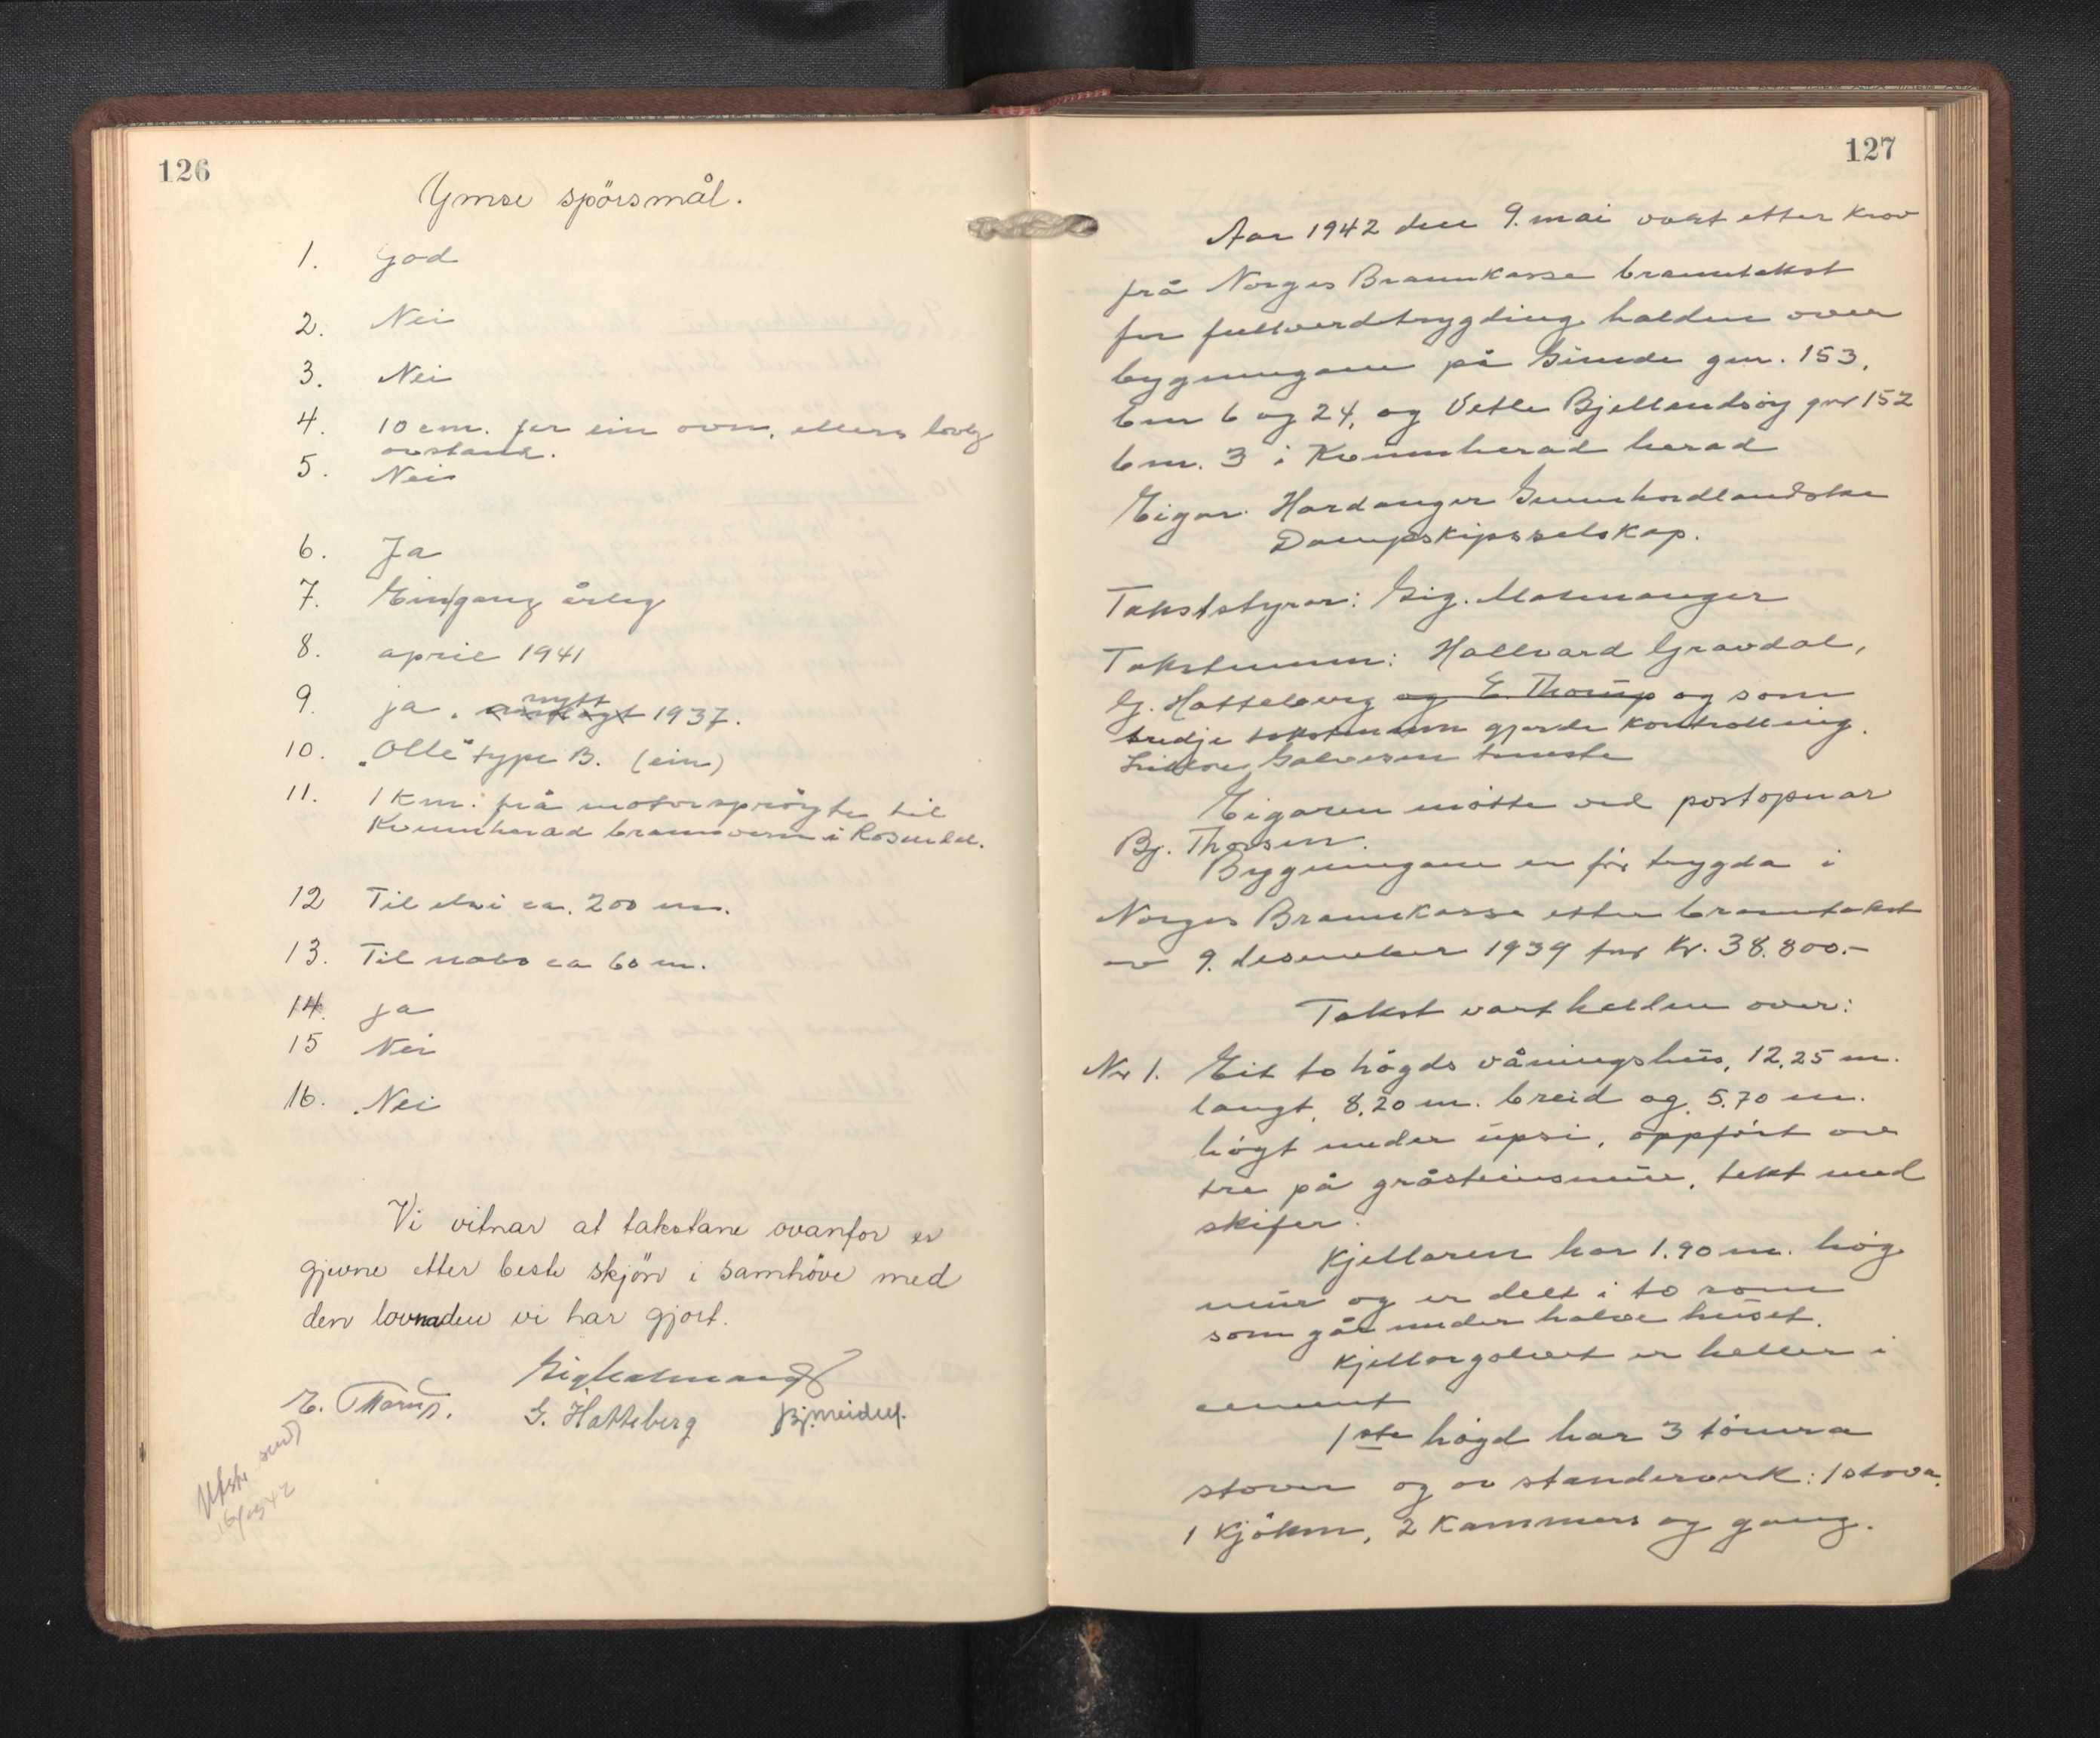 126
Ymse spörsmål.
1. God
2. Nei
3. Nei
4. 10 cm. for ein ovn, ellers lovleg
avstand.
5. Nei
6. Ja
7. Ein gang årleg
8. april 1941
9. ja. nytt 1937.
10. "Olle" type B. (ein)
11. 1 km. frå motorspröyte til
Kvinnherad brannvern i Rosendal.
12 Til elvi ca. 200 m.
13. Til nabo ca 60 m.
14. ja
15 Nei
16. Nei
Vi vitnar at takstane ovanfor er
gjevne etter beste skjön i samhöve med
den lovnaden vi har gjort.
Sig Malmanger
E. Thorup. G. Hatteberg
127
Aar 1942 den 9. mai vart etter krav
frå Norges Brannkasse branntakst
for fullverdtrygding halden over
bygningane på Sunde gnr. 153,
bnr 6 og 24, og Vetle Bjellandsöy gnr 152
bnr. 3 i Kvinnherad herad
Eigar: Hardanger Sunnhordlandske
Dampskipsselskap.
Takststyrar: Sig. Malmanger
Takstmenn: Hallvard Gravdal,
G. Hatteberg og E. Thorup og som
tredje takstmann gjorde kontrolling.
Halvorsen teneste
Eigaren mötte ved postopnar
Bj. Thorsen.
Bygningane er för trygda i
Norges Brannkasse etter branntakst
av 9. desember 1939 for Kr. 38.800.-
Takst vart halden over:
Nr 1. Eit to högds våningshus, 12,25 m.
langt, 8,20 m. breid og 5,70 m.
högt under upsi, oppfört av
tre på gråsteinsmur, tekt med
skifer.
Kjellaren har 1.90 m. hög
mur og er delt i to rom
som går under halve huset.
Kjellargolvet er heller i
cement
1ste högd har 3 tömra
stover og av standerverk: 1 stova,
1 kjöken, 2 kammers og gang.